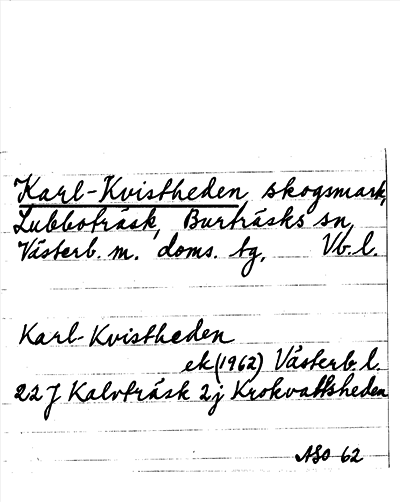 Karl-Kvistheden, skogsmark,
Lubboträsk, Burträsks sn,
Västerb. m. doms. tg, Vb. l.
Karl-Kvistheden
ek (1962) Västerb. l.
22 J Kalvträsk 2 j Krokvattsheden
ASO 62